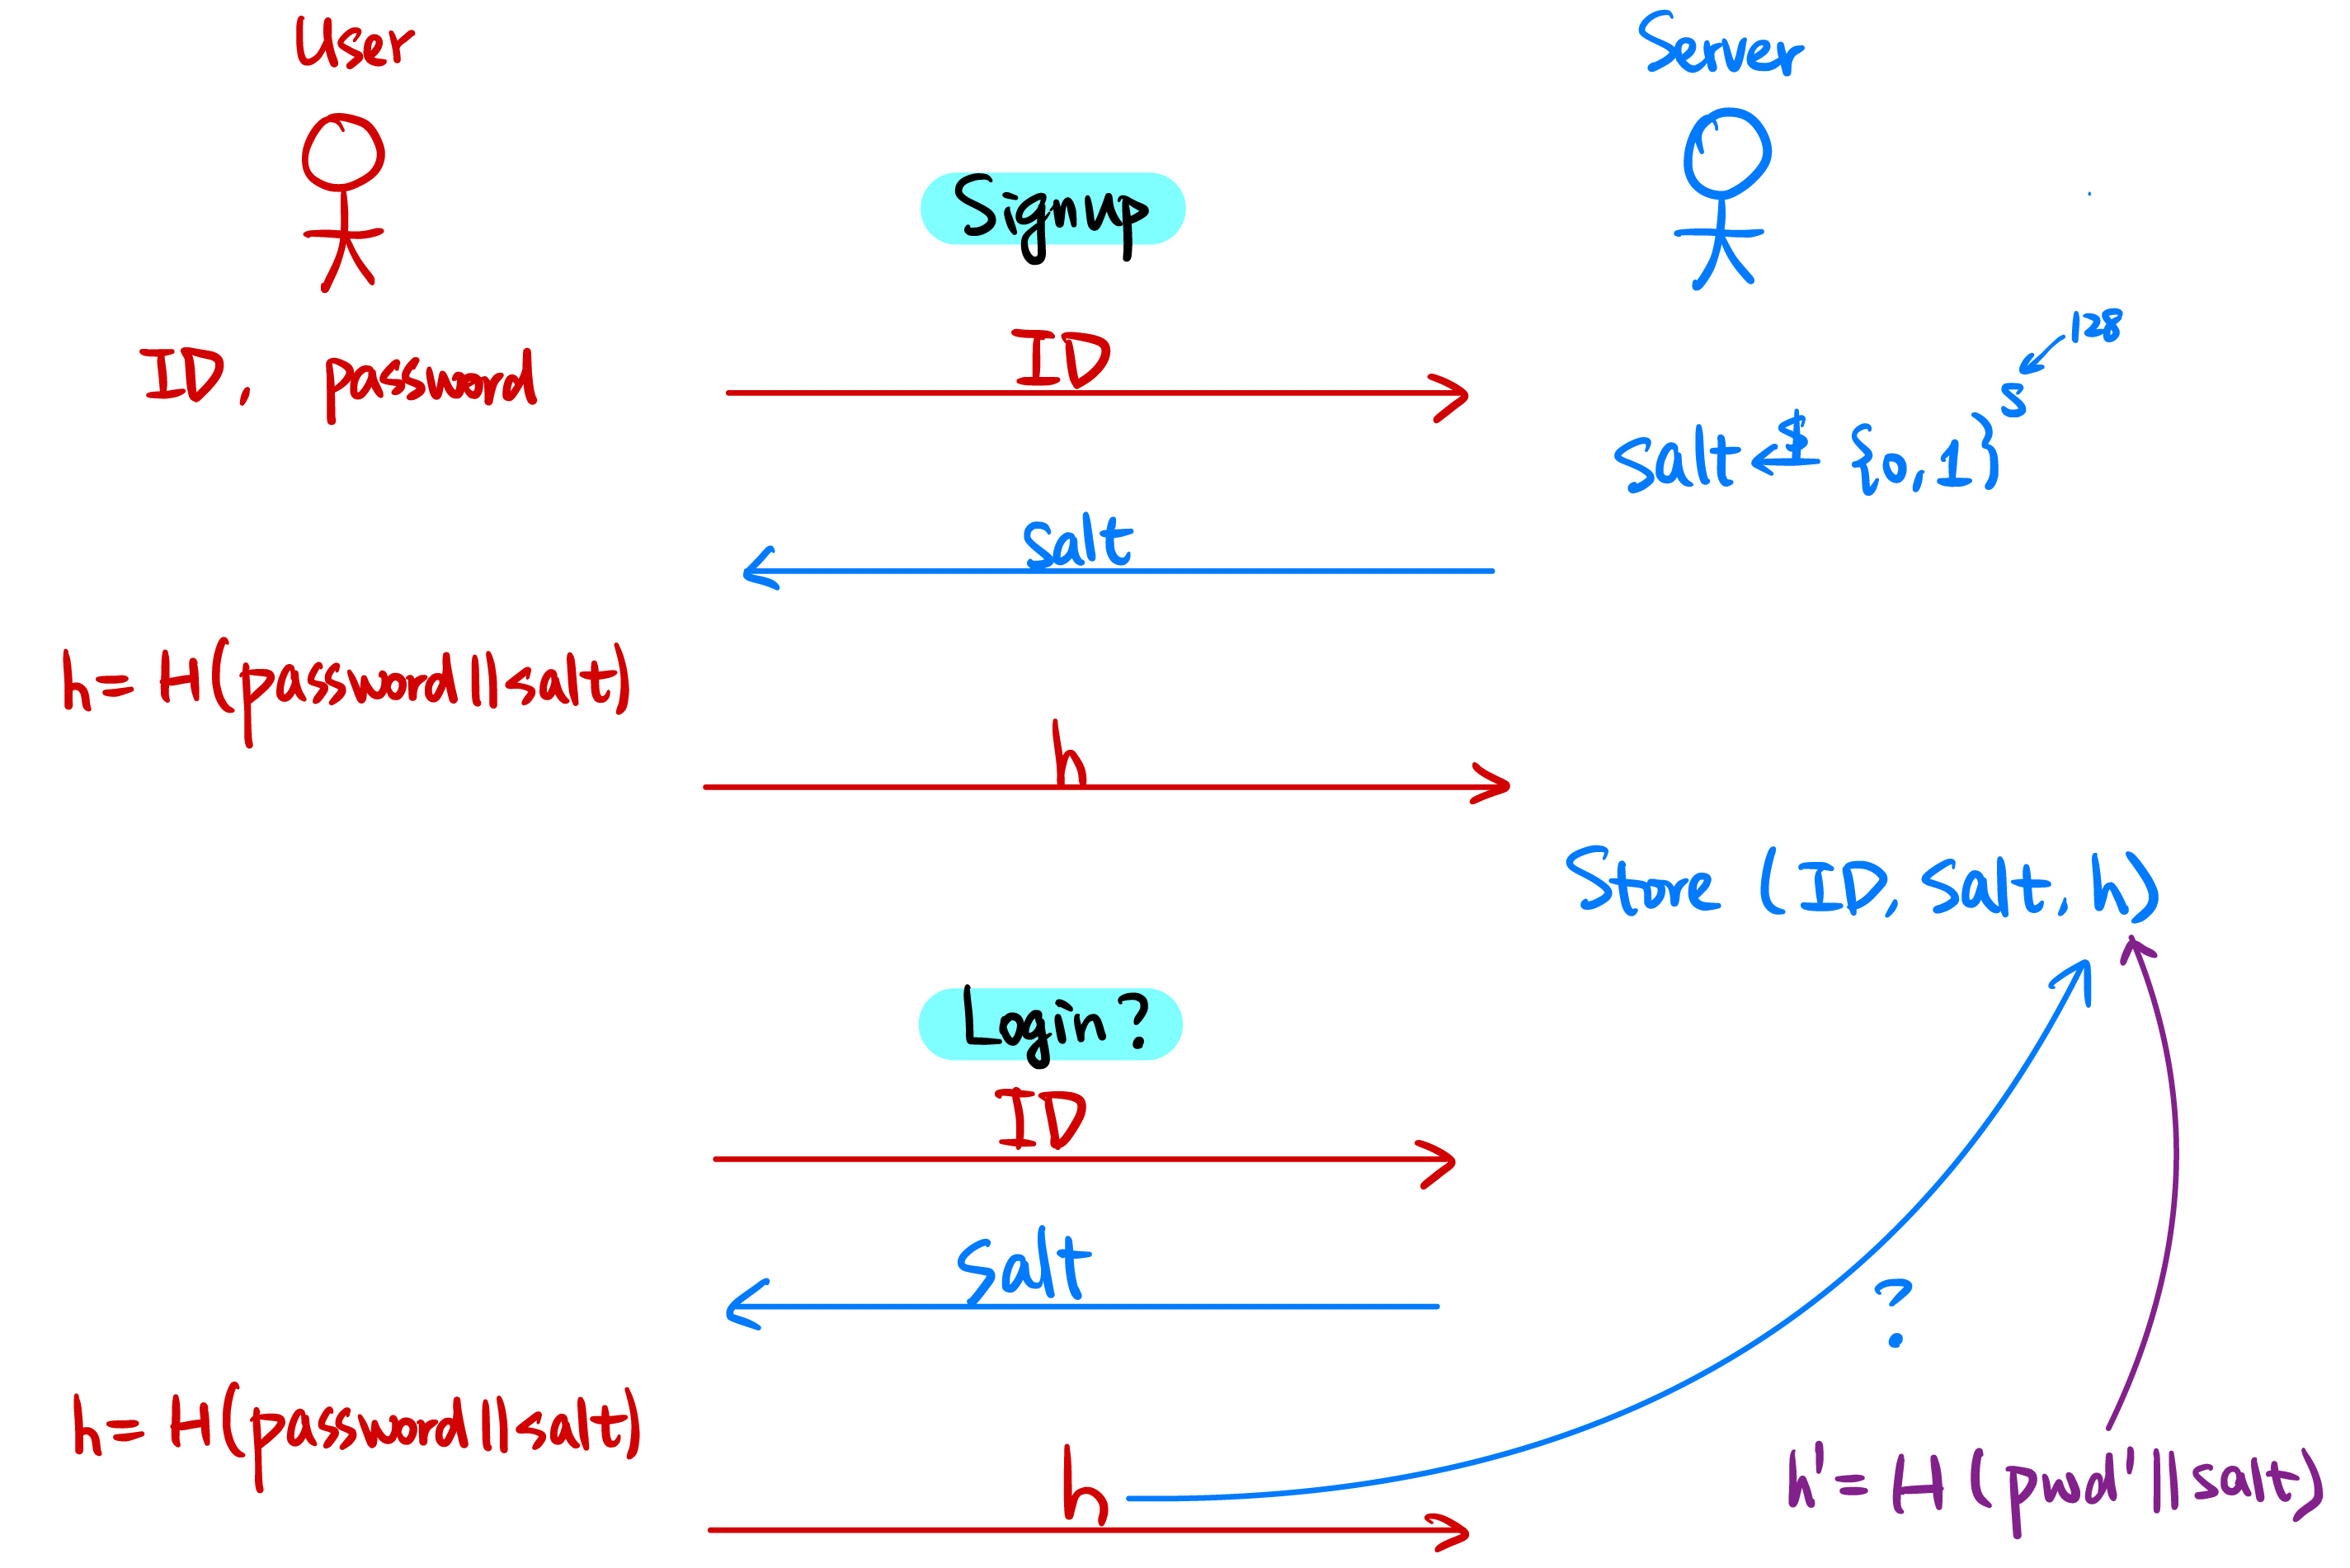 User
Server
Signup
ID, password
ID
128
salt <-$ {0,1}^s
salt
h = H(password||salt)
h
Store (ID, salt, h)
Login?
ID
salt
?
h = H(password||salt)
h
h' = H(pwd'||salt)